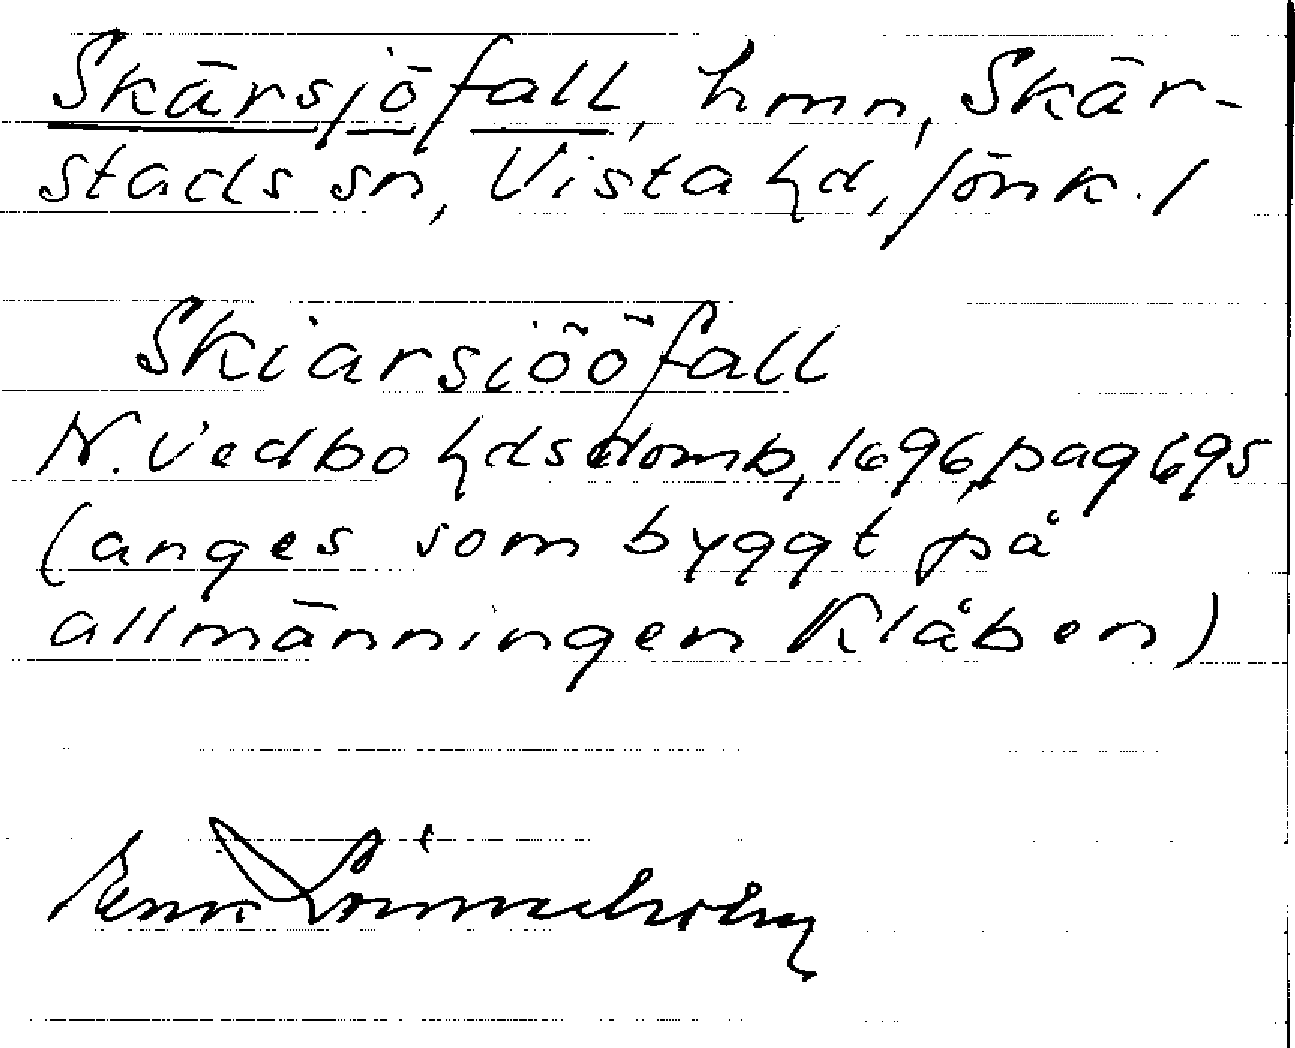 Skärsjöfall, hmn, Skär-
stads sn, Vista hd, Jönk. l
Skiarsiööfall
N. Vedbo hds domb, 1696, pag 695
(anges som byggt på
allmänningen Klåben)